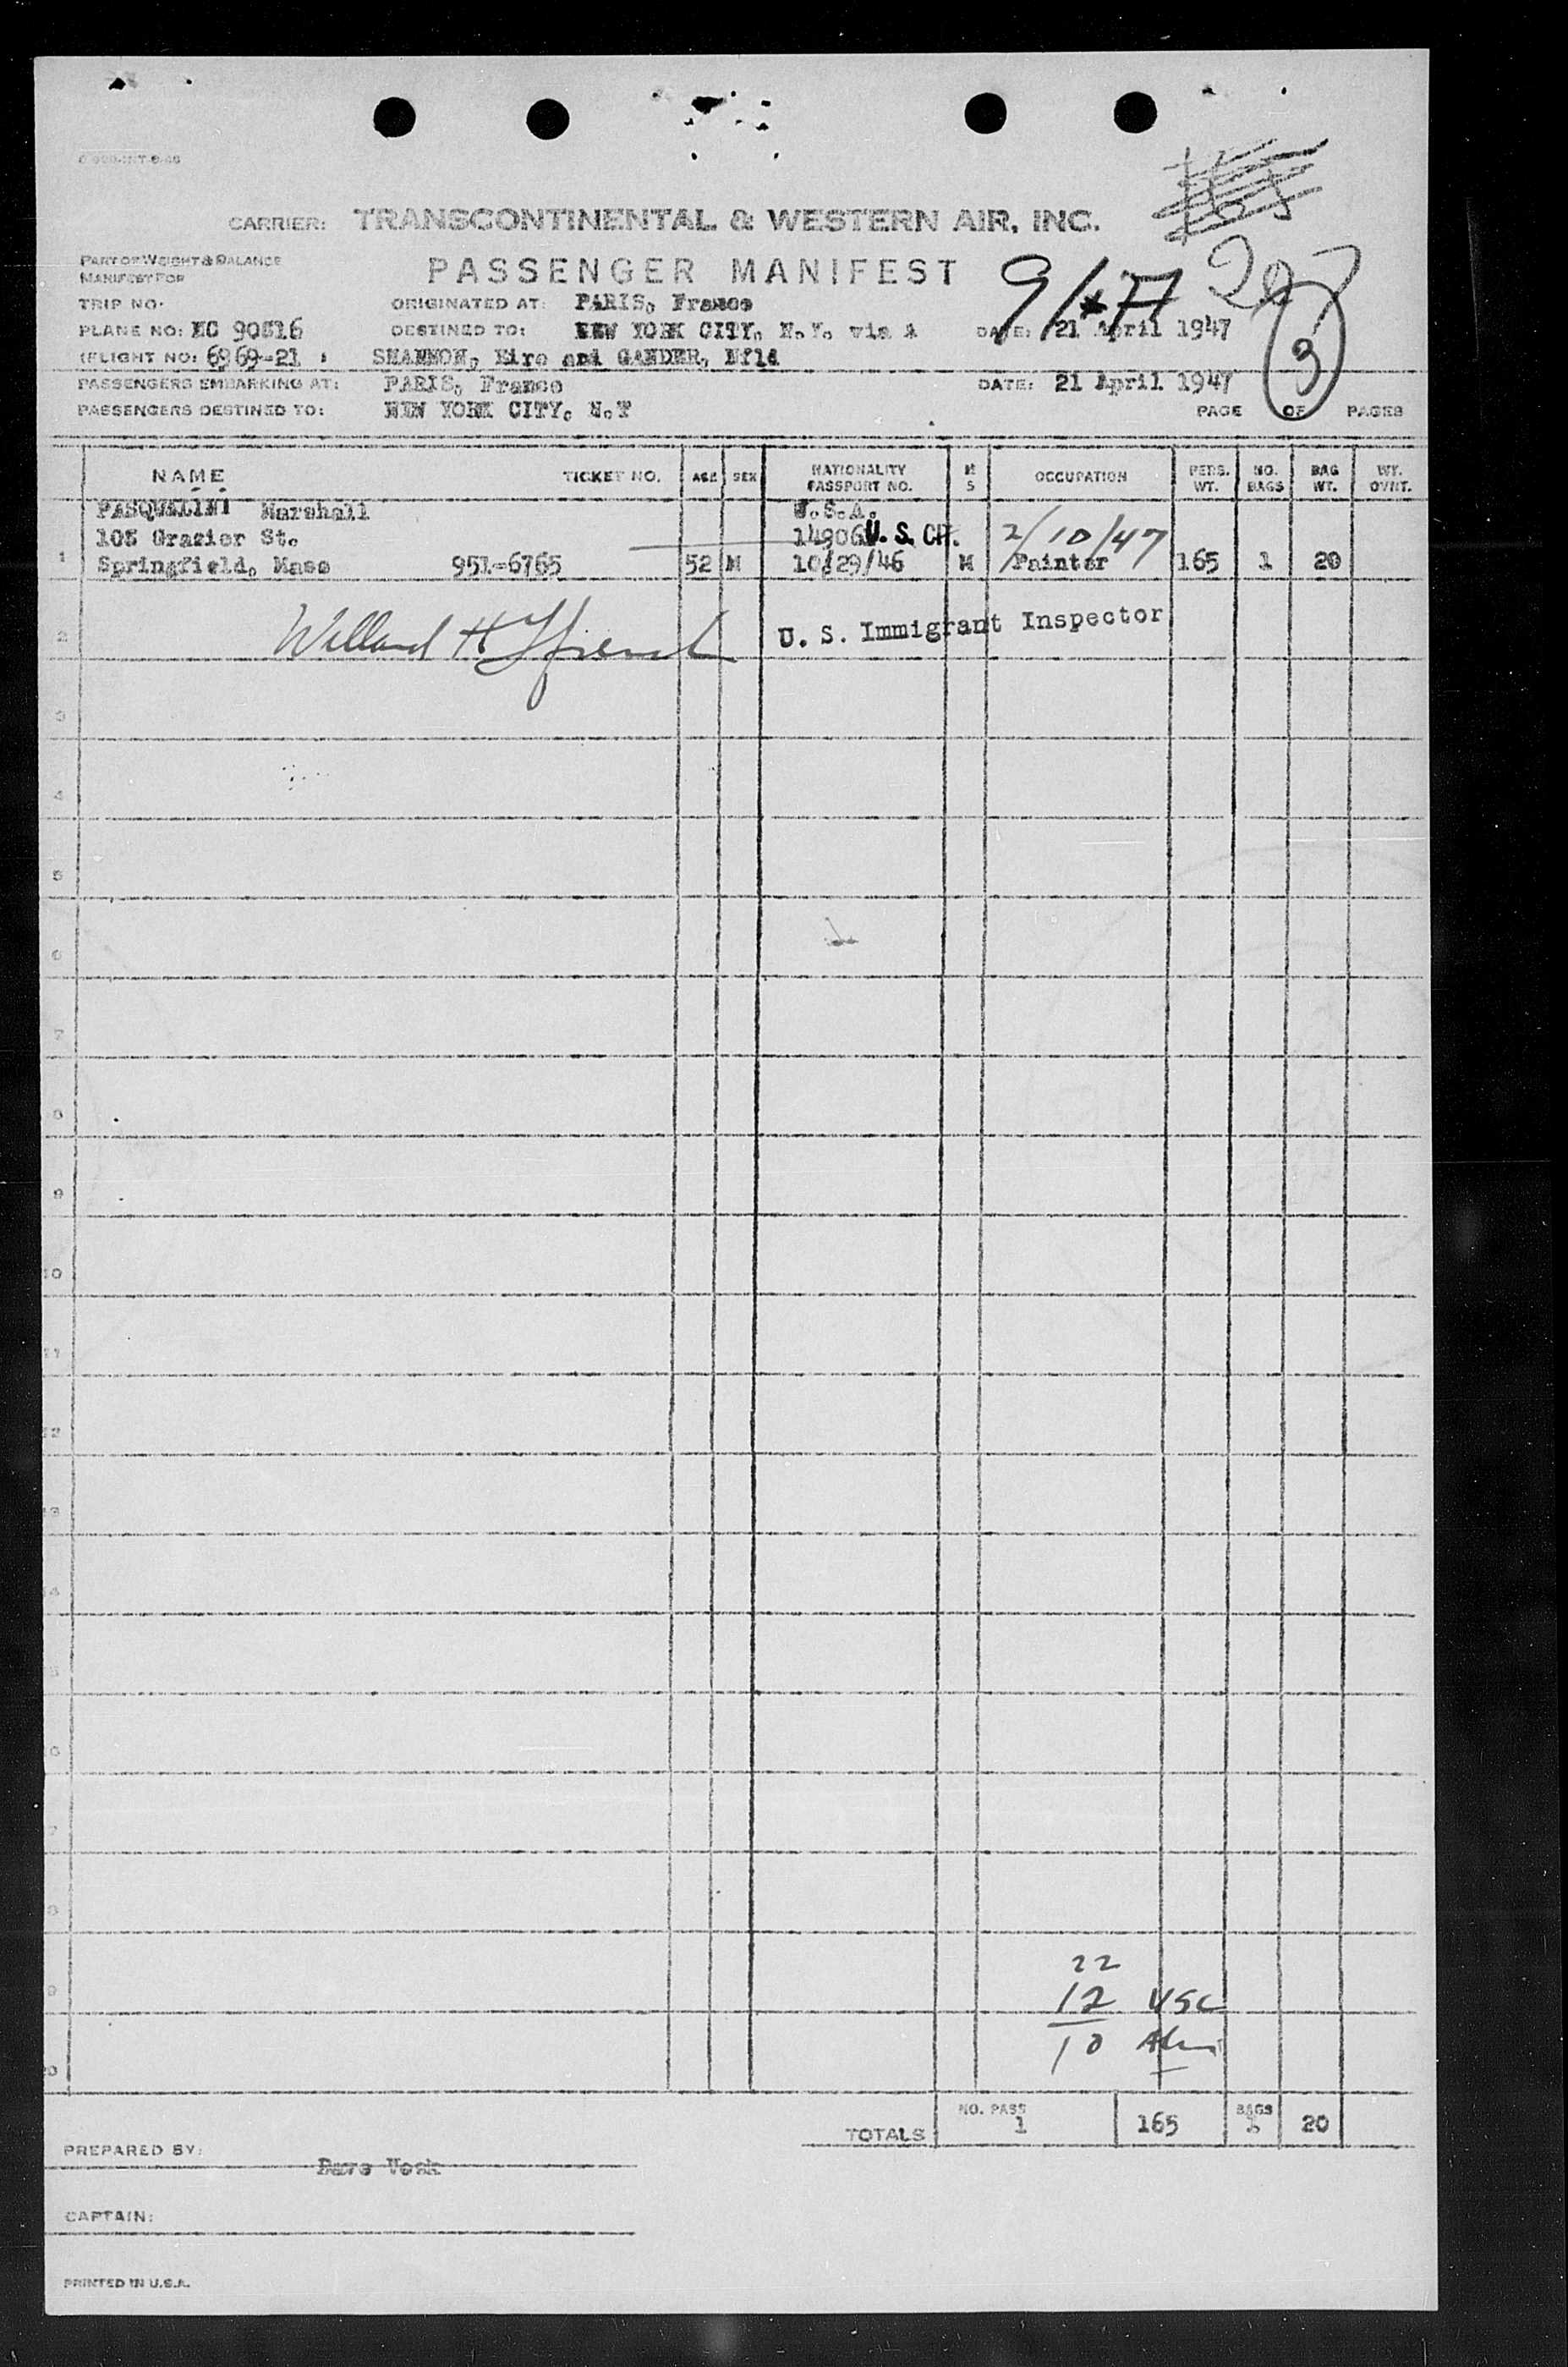 CARRIER: TRANSCONTINENTAL & WESTERN AIR, INC.
PART OF WEIGHT & BALANCE
MANIFEST FOR
PASSENGER MANIFEST
9/*77
TRIP NO.
ORIGINATED AT: PARIS, France
PLANE NO: NC 90816
DESTINED TO: NEW YORK CITY, N.Y. via
DATE: 21 April 1947
(FLIGHT NO: 6969-21
SHANNON, Eire and GANDER, Nfld
3
PASSENGERS EMBARKING AT: PARIS, France
DATE: 21 April 1947
PASSENGERS DESTINED TO: NEW YORK CITY, N.Y
PAGE OF PAGES
NAME TICKET NO. AGE SEX NATIONALITY PASSPORT NO. M S OCCUPATION PERS. WT. NO. BAGS BAG WT. WT. OVNT.
PASQUELINI Marshall U.S.A.
105 Grazier St. 14906 U. S. CIT. 2/10/47
1 Springfield, Mass 951-6765 52 M 10/29/46 M Painter 165 1 20
2 Willard H French U. S. Immigrant Inspector
3
4
5
6
7
8
9
10
11
12
13
14
22
12 USC
10
TOTALS NO. PASS 1 165 BAGS 20
PREPARED BY:
CAPTAIN:
PRINTED IN U.S.A.